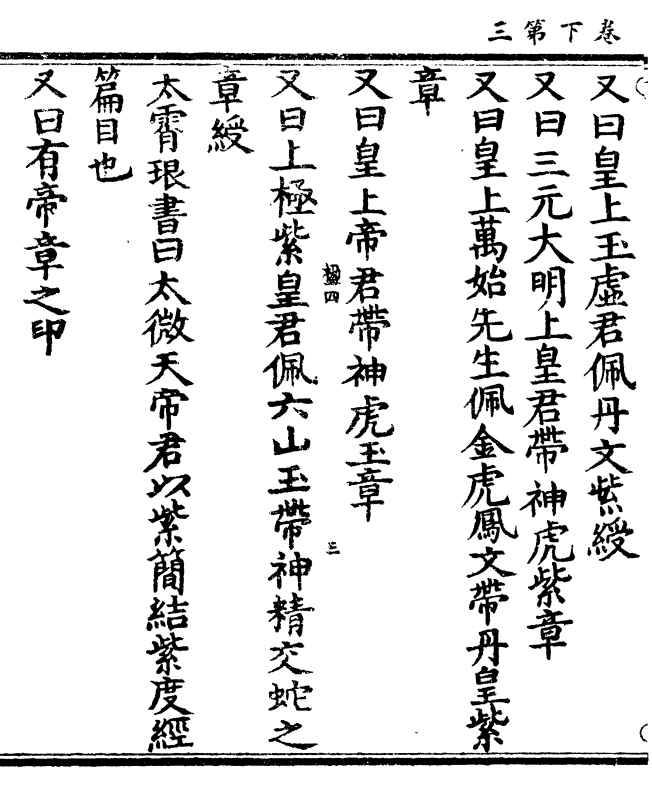 三第下卷
又曰皇上玉虛君佩丹文紫綬
又曰三元大明上皇君帶神虎紫章
又曰皇上萬始先生佩金虎鳳文帶丹皇紫
章
又曰皇上帝君帶神虎玉章
四
三
又曰上極紫皇君佩六山玉帶神精交蛇之
章綬
太霄琅書曰太微天帝君以紫簡結紫度經
篇目也
又曰有帝章之印